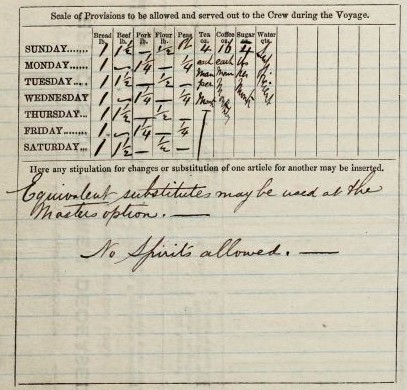 Scale of Provisions to be allowed and served out to the Crew during the Voyage.
Bread lb. Beef lb. Pork lb. Flour lb. Peas Tea oz. Coffee oz. Sugar oz. Water qts.
SUNDAY....... 1 1½ — ½ 4 10
MONDAY....... 1 1¼ — each each
TUESDAY...... 1 1½ — ½ man man per
WEDNESDAY 1 1¼ — ¼
THURSDAY..... 1 1½ — ½
FRIDAY........ 1 1¼ — ¼
SATURDAY.... 1 1½ — ½
Here any stipulation for changes or substitution of one article for another may be inserted.
Equivalent substitutes may be used at the
Masters option. —
No Spirits allowed. —